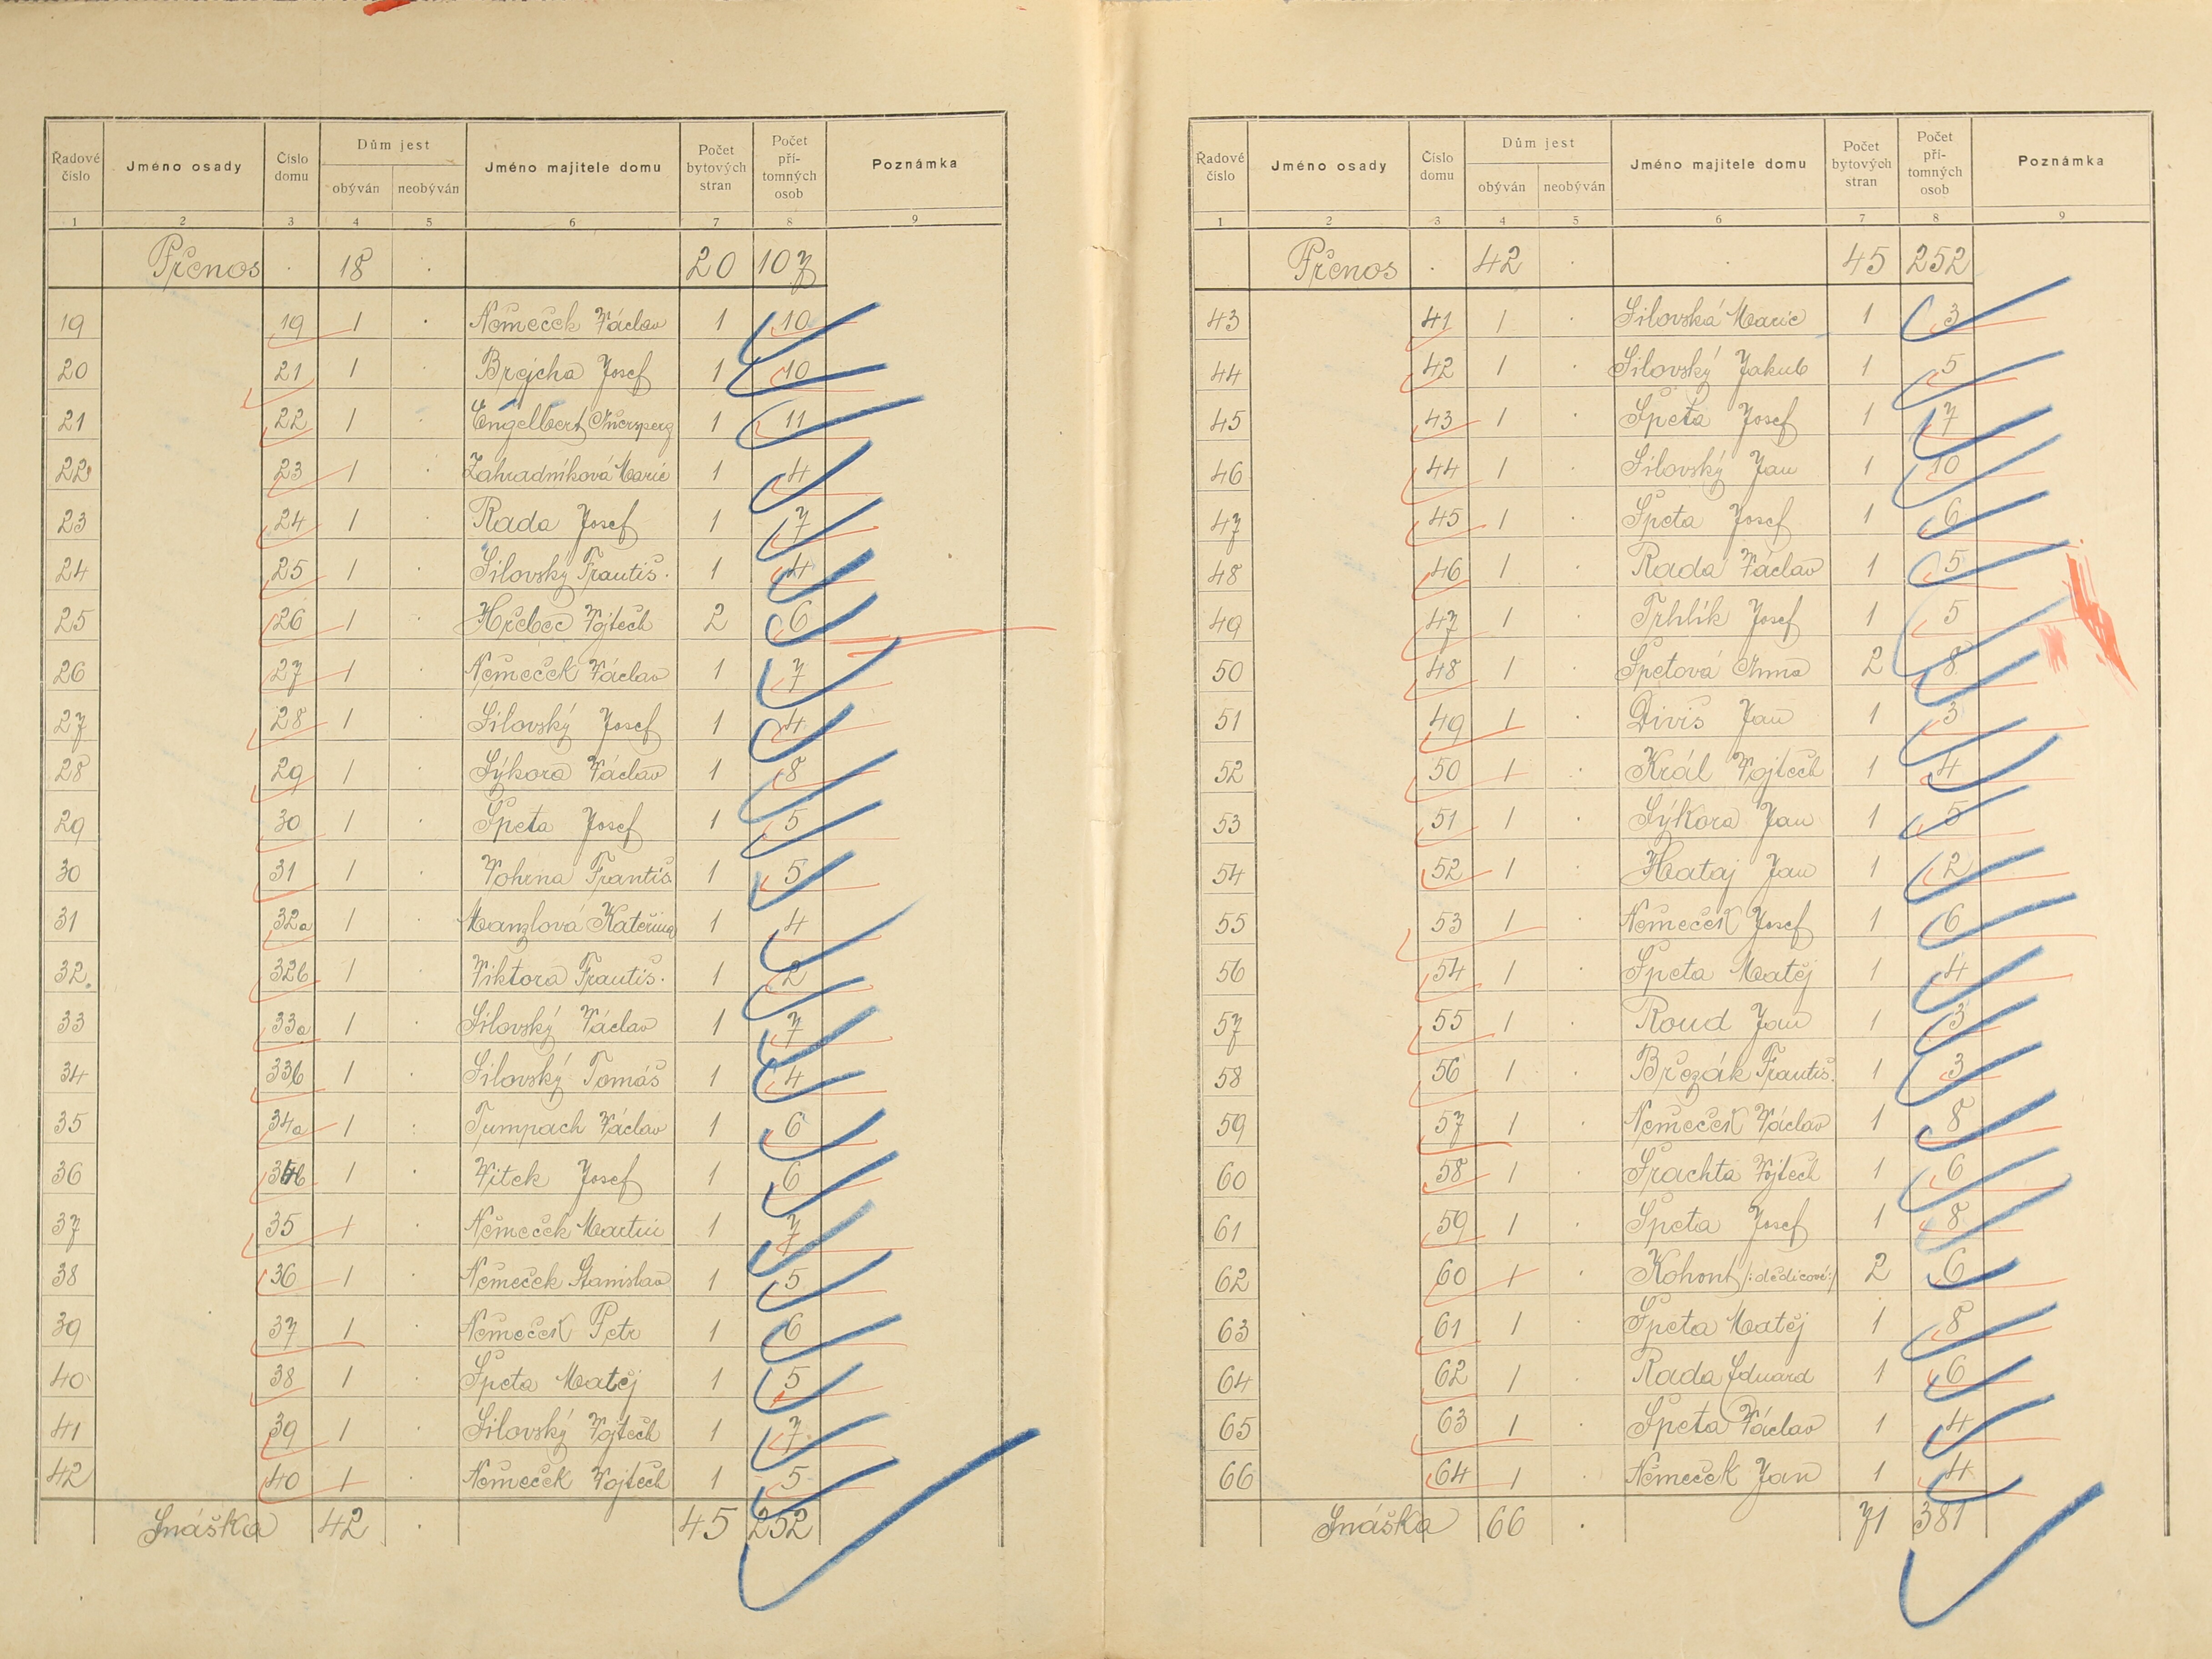 Řadové číslo | Jméno osady | Číslo domu | Dům jest obýván | neobýván | Jméno majitele domu | Počet bytových stran | Počet přítomných osob | Poznámka
1 | 2 | 3 | 4 | 5 | 6 | 7 | 8 | 9
Přenos . 18 . 20 107
19 19 1 . Němeček Václav 1 10
20 21 1 . Brejcha Josef 1 10
21 22 1 . Engelbert 1 11
22 23 1 . Zahradníková Marie 1 4
23 24 1 . Rada Josef 1 7
24 25 1 . Silovský Františ. 1 4
25 26 1 . Hřebec Vojtěch 2 6
26 27 1 . Němeček Václav 1 7
27 28 1 . Silovský Josef 1 4
28 29 1 . Sýkora Václav 1 8
29 30 1 . Špeta Josef 1 5
30 31 1 . Františ. 1 5
31 32a 1 . Manzlová Kateřina 1 4
32. 32b 1 . Viktora Františ. 1 2
33 33a 1 . Silovský Václav 1 7
34 33b 1 . Silovský Tomáš 1 4
35 34a 1 : Tumpach Václav 1 6
36 34b 1 . Vitek Josef 1 6
37 35 1 . Němeček Martin 1 7
38 36 1 . Němeček Stanislav 1 5
39 37 1 . Němeček Petr 1 6
40 38 1 . Špeta Matěj 1 5
41 39 1 . Silovský Vojtěch 1 7
42 40 1 . Němeček Vojtěch 1 5
Snáška 42 . 45 252
Řadové číslo | Jméno osady | Číslo domu | Dům jest obýván | neobýván | Jméno majitele domu | Počet bytových stran | Počet přítomných osob | Poznámka
1 | 2 | 3 | 4 | 5 | 6 | 7 | 8 | 9
Přenos . 42 . . 45 252
43 41 1 . Silovská Marie 1 3
44 42 1 . Silovský Jakub 1 5
45 43 1 . Špeta Josef 1 7
46 44 1 . Silovský Jan 1 10
47 45 1 . Špeta Josef 1 6
48 46 1 . Rada Václav 1 5
49 47 1 . Trhlík Josef 1 5
50 48 1 . Špetová Anna 2 8
51 49 1 . Diviš Jan 1 3
52 50 1 . Král Vojtěch 1 4
53 51 1 . Sýkora Jan 1 5
54 52 1 . Hataj Jan 1 2
55 53 1 . Němeček Josef 1 6
56 54 1 . Špeta Matěj 1 4
57 55 1 . Roud Jan 1 3
58 56 1 . Březák Františ. 1 3
59 57 1 . Němeček Václav 1 8
60 58 1 . Šrachta Vojtěch 1 6
61 59 1 . Špeta Josef 1 8
62 60 1 . Kohont /:dědicové:/ 2 6
63 61 1 . Špeta Matěj 1 8
64 62 1 . Rada Eduard 1 6
65 63 1 . Špeta Václav 1 4
66 64 1 . Němeček Jan 1 4
Snáška 66 . 71 381